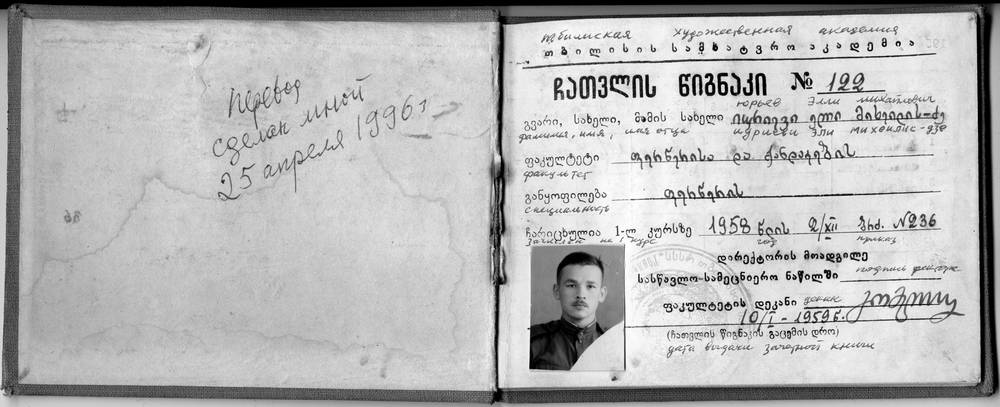 Перевод
сделан мной
25 апреля 1996 г
Тбилисская художественная академия
თბილისის სამხატვრო აკადემია
ჩათვლის წიგნაკი № 122
юрьев Элли михайлович
გვარი, სახელი, მამის სახელი იურიევი ელი მიხეილის-ძე
фамилия, имя, имя отца иуриеви эли михеилис-дзе
ფაკულტეტი ფერწერისა და ქანდაკების
факультет
განყოფილება ფერწერის
специальность
ჩარიცხულია 1-ლ კურსზე 1958 წლის 2/XII ბრძ. №236
зачислен на 1 курс год приказ
დირექტორის მოადგილე
სასწავლო-სამეცნიერო ნაწილში подпись
ფაკულტეტის დეკანი декан
10/I - 1959 წ.
(ჩათვლის წიგნაკის გაცემის დრო)
дата выдачи зачетной книги